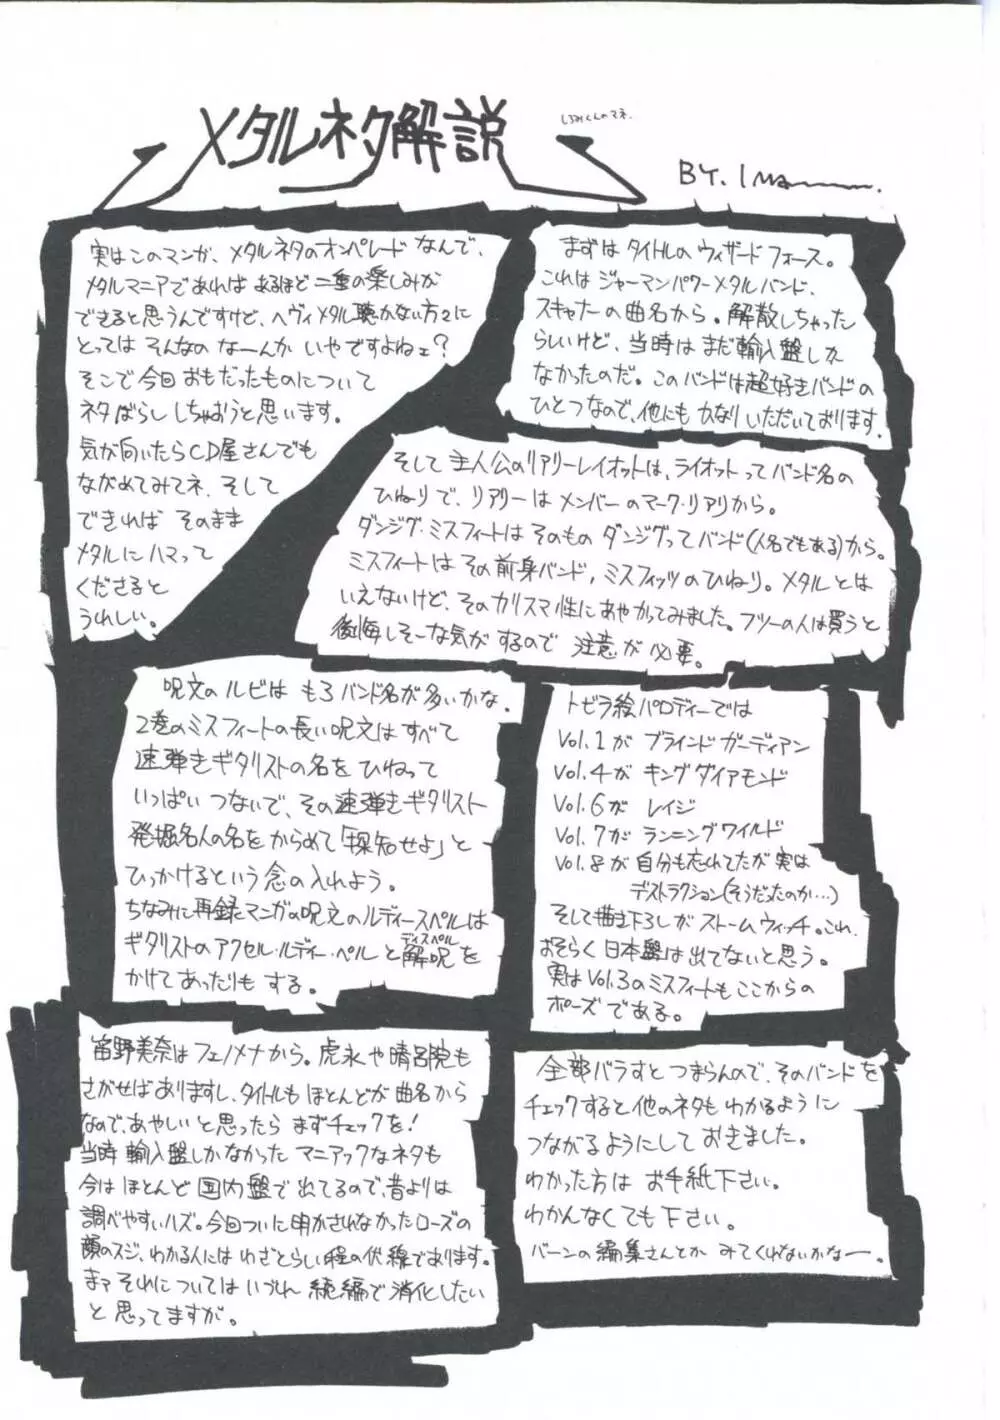 メタルネタ解説
しろみくんのマネ.
BY.
実はこのマンガ、メタルネタのオンパレードなんで、
メタルマニアであればあるほど二重の楽しみが
できると思うんですけど、ヘヴィメタル聴かない方々に
とってはそんなのなーんかいやですよねェ?
そこで今回おもだったものについて
ネタばらししちゃおうと思います。
気が向いたらCD屋さんでも
ながめてみてネ、そして
できればそのまま
メタルにハマって
くださると
うれしい。
まずはタイトルのウィザードフォース。
これはジャーマンパワーメタルバンド、
スキャナーの曲名から。解散しちゃった
らしいけど、当時はまだ輸入盤しか
なかったのだ。このバンドは超好きバンドの
ひとつなので、他にもかなりいただいております。
そして主人公のリアリーレイオットは、ライオットってバンド名の
ひねりで、リアリーはメンバーのマーク・リアリから。
ダンジグ・ミスフィートはそのものダンジグってバンド(人名でもある)から。
ミスフィートはその前身バンド,ミスフィッツのひねり。メタルとは
いえないけど、そのカリスマ性にあやかってみました。フツーの人は買うと
後悔しそーな気がするので注意が必要。
呪文のルビはもろバンド名が多いかな.
2巻のミスフィートの長い呪文はすべて
速弾きギタリストの名をひねって
いっぱいつないで、その速弾きギタリスト
発掘名人の名をからめて「探知せよ」と
ひっかけるという念の入れよう。
ちなみに再録マンガの呪文のルディースペルは
ギタリストのアクセル・ルディー・ペルと解呪(ディスペル)を
かけてあったりもする。
トビラ絵パロディーでは
Vol.1がブラインドガーディアン
Vol.4がキングダイアモンド
Vol.6がレイジ
Vol.7がランニングワイルド
Vol.8が自分も忘れてたが実は
デストラクション(そうだったのか…)
そして描き下ろしがストームウィッチ。これ、
おそらく日本盤は出てないと思う。
実はVol.3のミスフィートもここからの
ポーズである。
笛野美奈はフェノメナから。虎永や晴呂院も
さがせばありますし、タイトルもほとんどが曲名から
なので、あやしいと思ったらまずチェックを!
当時輸入盤しかなかったマニアックなネタも
今はほとんど国内盤で出てるので、昔よりは
調べやすいハズ。今回ついに明かされなかったローズの
顔のスジ、わかる人にはわざとらしい程の伏線であります。
まァそれについてはいづれ続編で消化したい
と思ってますが。
全部バラすとつまらんので、そのバンドを
チェックすると他のネタもわかるように
つながるようにしておきました。
わかった方はお手紙下さい。
わかんなくても下さい。
バーンの編集さんとかみてくれないかなー。